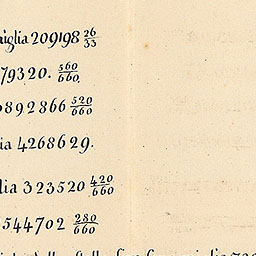 miglia 209198 26/33
79320. 560/660.
0892866 520/660
ia 4268629.
lia 323520 420/660
544702 280/660